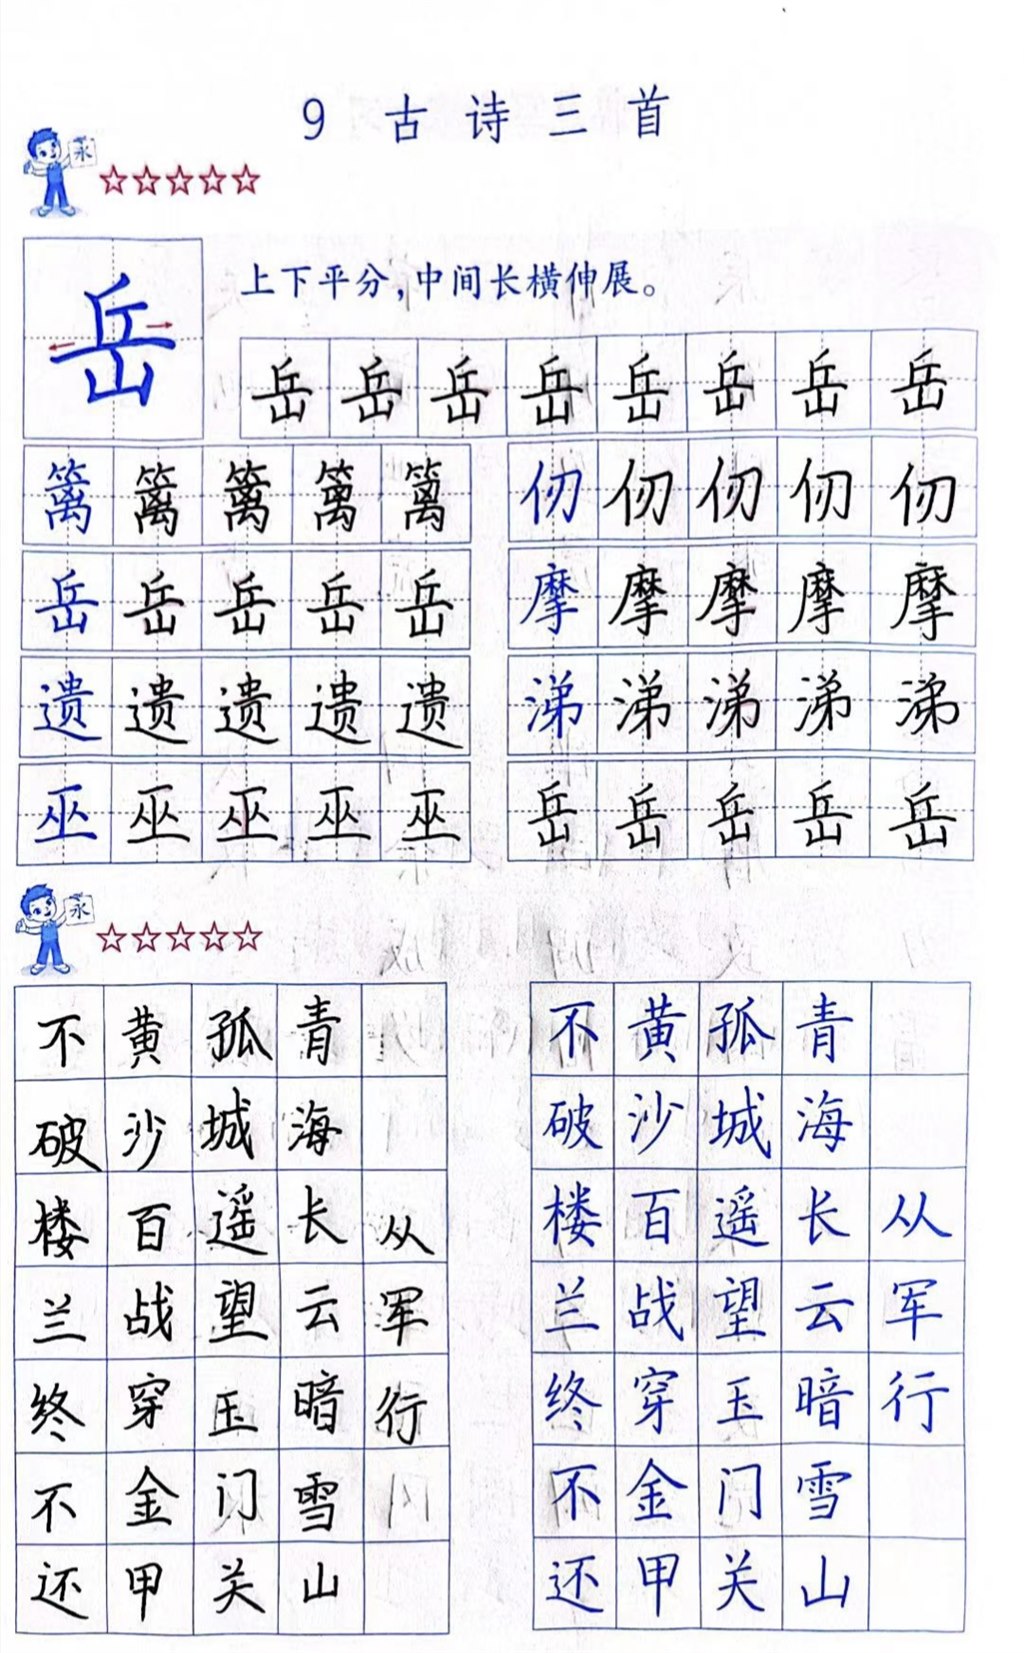 9 古诗三首
永
岳
上下平分,中间长横伸展。
岳岳岳岳岳岳岳岳
篱篱篱篱篱 仞仞仞仞仞
岳岳岳岳岳 摩摩摩摩摩
遗遗遗遗遗 涕涕涕涕涕
巫巫巫巫巫 岳岳岳岳岳
永
不黄孤青 不黄孤青
破沙城海 破沙城海
楼百遥长从 楼百遥长从
兰战望云军 兰战望云军
终穿玉暗行 终穿玉暗行
不金门雪 不金门雪
还甲关山 还甲关山